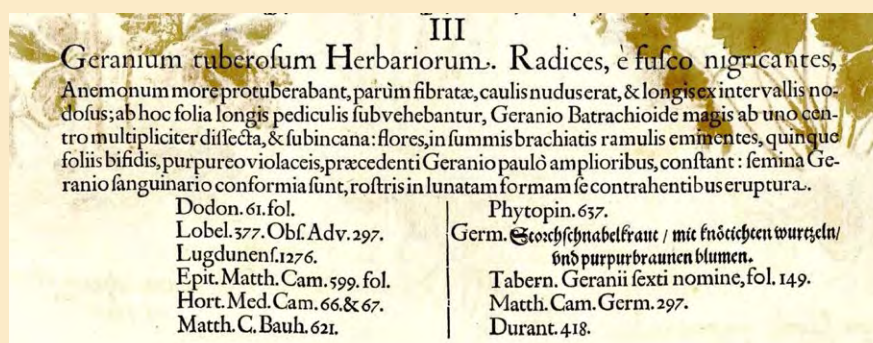 III
Geranium tuberoſum Herbariorum. Radices, è fuſco nigricantes,
Anemonum more protuberabant, parùm fibratæ, caulis nudus erat, & longis ex intervallis no-
doſus; ab hoc folia longis pediculis ſubvehebantur, Geranio Batrachioide magis ab uno cen-
tro multipliciter diſſecta, & ſubincana: flores, in ſummis brachiatis ramulis eminentes, quinque
foliis bifidis, purpureo violaceis, præcedenti Geranio paulò amplioribus, conſtant: ſemina Ge-
ranio ſanguinario conformia ſunt, roſtris in lunatam formam ſe contrahentibus eruptura.
Dodon. 61. fol.
Lobel. 377. Obſ. Adv. 297.
Lugdunenſ. 1276.
Epit. Matth. Cam. 599. fol.
Hort. Med. Cam. 66. & 67.
Matth. C. Bauh. 621.
Phytopin. 637.
Germ. Storchſchnabelkraut / mit knötichten wurtzeln/
vnd purpurbraunen blumen.
Tabern. Geranii ſexti nomine, fol. 149.
Matth. Cam. Germ. 297.
Durant. 418.